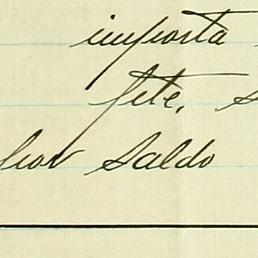 importa
fite, s
por saldo